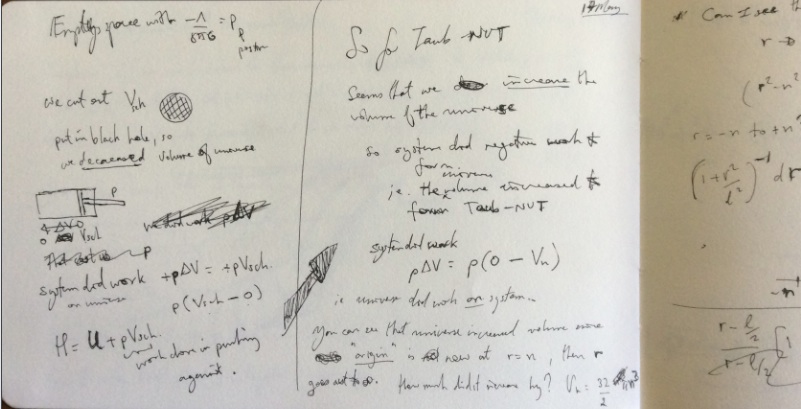 Empty space with -Λ/8πG = p
p
positive
we cut out Vsch
put in black hole, so
we decreased volume of universe
p
+ΔV
0 Vsch
p
system did work +pΔV = +pVsch.
on universe p(Vsch - 0)
H = U + pVsch.
work done in pushing
against.
So for Taub-NUT
Seems that we increase the
volume of the universe
so system did negative work to
form
universe
ie. the volume increased to
form Taub-NUT
system did work
pΔV = p(0 - Vn)
ie universe did work on system.
You can see that universe increased volume since
"origin" is now at r=n, then r
goes out to ∞. How much did it increase by? Vn =
Can I see th
r →
(r²-n²
r = -n to +n
(1 + r²/l²)⁻¹ dr
r - l/2
r - l/2